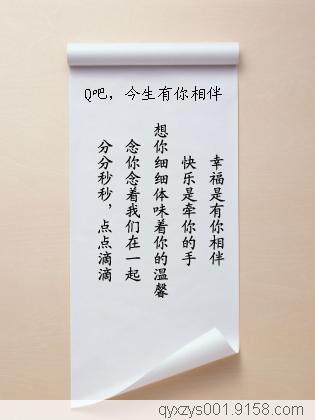 Q吧，今生有你相伴
幸福是有你相伴
快乐是牵你的手
想你细细体味着你的温馨
念你念着我们在一起
分分秒秒，点点滴滴
qyxzys001.9158.com